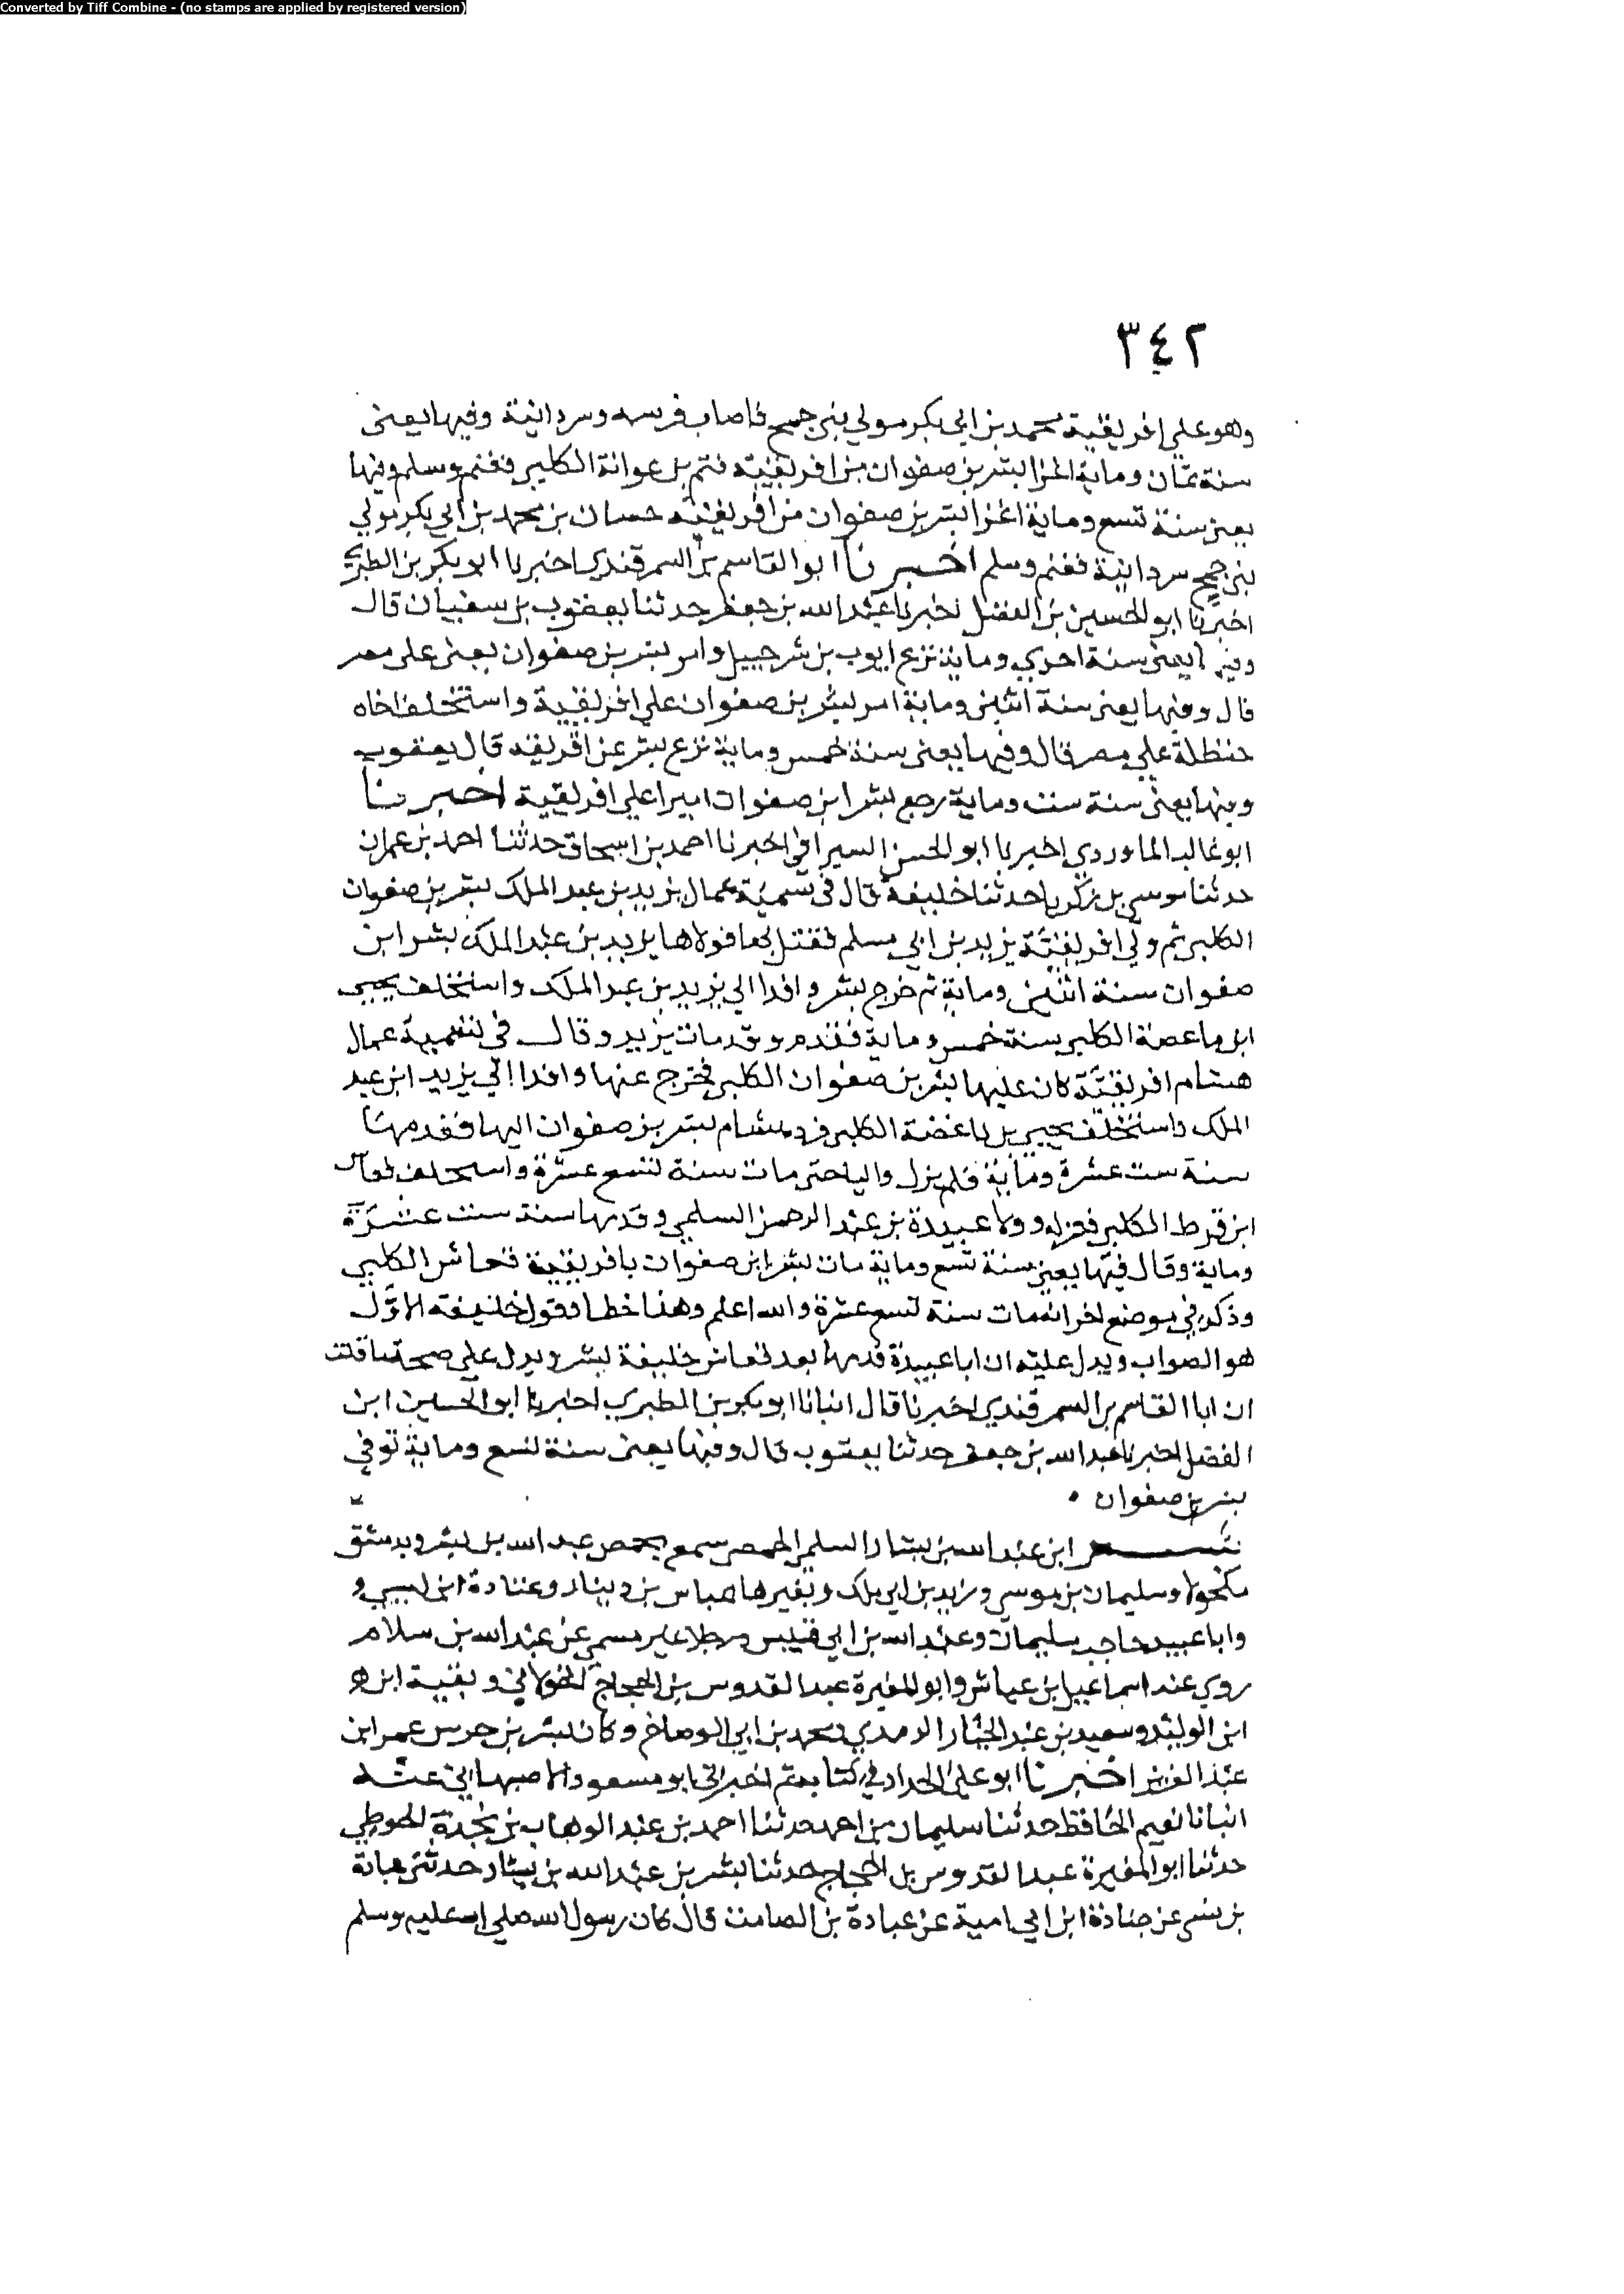 Converted by Tiff Combine - (no stamps are applied by registered version)
٣٤٢
وهو علي افريقية محمد بن ابي بكر مولي بني جمح فاصاب فرسه وسردانية وفيها يعني
سنة ثمان وماية اغزا بشر بن صفوان من افريقية قثم بن عوانة الكلبي فغنم وسلم وفيها
يعني سنة تسع وماية اغزا بشر بن صفوان من افريقية حسان بن محمد بن ابي بكر مولي
بني جمح سردانية فغنم وسلم اخبرنا ابو القاسم بن السمرقندي اخبرنا ابو بكر بن الطبري
اخبرنا ابو الحسين بن الفضل اخبرنا عبد الله بن جعفر حدثنا يعقوب بن سفيان قال
وفيها يعني سنة احدي وماية نزع ايوب بن شرحبيل وامر بشر بن صفوان يعني على مصر
قال وفيها يعني سنة اثنين وماية امر بشر بن صفوان علي افريقية واستخلف اخاه
حنظلة علي مصر قال وفيها يعني سنة خمس وماية نزع بشر عن افريقية قال يعقوب
وفيها يعني سنة ست وماية رجع بشر ابن صفوان اميرا علي افريقية اخبرنا
ابو غالب الماوردي اخبرنا ابو الحسن السيرافي اخبرنا احمد بن اسحاق حدثنا احمد بن عمران
حدثنا موسي بن زكريا حدثنا خليفة قال في تسمية عمال يزيد بن عبد الملك بشر بن صفوان
الكلبي ثم ولي افريقية يزيد بن ابي مسلم فقتل بها فولاها يزيد بن عبد الملك بشر ابن
صفوان سنة اثنين وماية ثم خرج بشر وافدا الي يزيد بن عبد الملك واستخلف يحيى
ابن ماعصة الكلبي سنة خمس وماية فقدم وقد مات يزيد وقال في تسمية عمال
هشام افريقية كان عليها بشر بن صفوان الكلبي فخرج عنها وافدا الي يزيد ابن عبد
الملك واستخلف يحيى بن ماغضة الكلبي فرد هشام بشر بن صفوان اليها فقدمها
سنة ست عشرة وماية فلم يزل واليا حتى مات سنة تسع عشرة واستخلف نعاس
ابن قرط الكلبي فعزله وولا عبيدة بن عبد الرحمن السلمي وقدمها سنة ست عشرة
وماية وقال فيها يعني سنة تسع وماية مات بشر ابن صفوان بافريقية نعاش الكلبي
وذكر في موضع اخر انه مات سنة تسع عشرة والله اعلم وهذا خطا وقول خليفة الاول
هو الصواب ويدل عليه ان ابا عبيدة قدمها بعد نعاس خليفة بشر ويدل على صحة ما قلت
ان ابا القاسم بن السمرقندي اخبرنا قال انبانا ابو بكر بن الطبري اخبرنا ابو الحسين ابن
الفضل اخبرنا عبد الله بن جعفر حدثنا يعقوب قال وفيها يعني سنة تسع وماية توفي
بشر بن صفوان
بشر ابن عبد الله بن يسار السلمي الحمصي سمع بحمص عبد الله بن بشر وبدمشق
مكحولا وسليمان بن موسي ويزيد بن ابي ملك وبغيرها عباس بن دينار وعبادة ابن نسي و
وابا عبيد حاجب سليمان وعبد الله بن ابي قيس ورجلا غير مسمي عن عبد الله بن سلام
روي عنه اسماعيل ابن عياش وابو المغيرة عبد القدوس بن الحجاج الخولاني وبقية ابن هو
ابن الوليد وسعيد بن عبد الجبار الزبيدي ومحمد بن ابي الوضاح وكان بشر بن حرس عمر ابن
عبد العزيز اخبرنا ابو علي الحداد في كتابه ثم اخبرني ابو مسعود الاصبهاني عنه
انبانا نعيم الحافظ حدثنا سليمان بن احمد حدثنا احمد بن عبد الوهاب بن نجدة الحوطي
حدثنا ابو المغيرة عبد القدوس بن الحجاج حدثنا بشر بن عبد الله بن يسار حدثني عبادة
بن نسي عن جنادة ابن ابي امية عن عبادة بن الصامت قال كان رسول الله صلي الله عليه وسلم